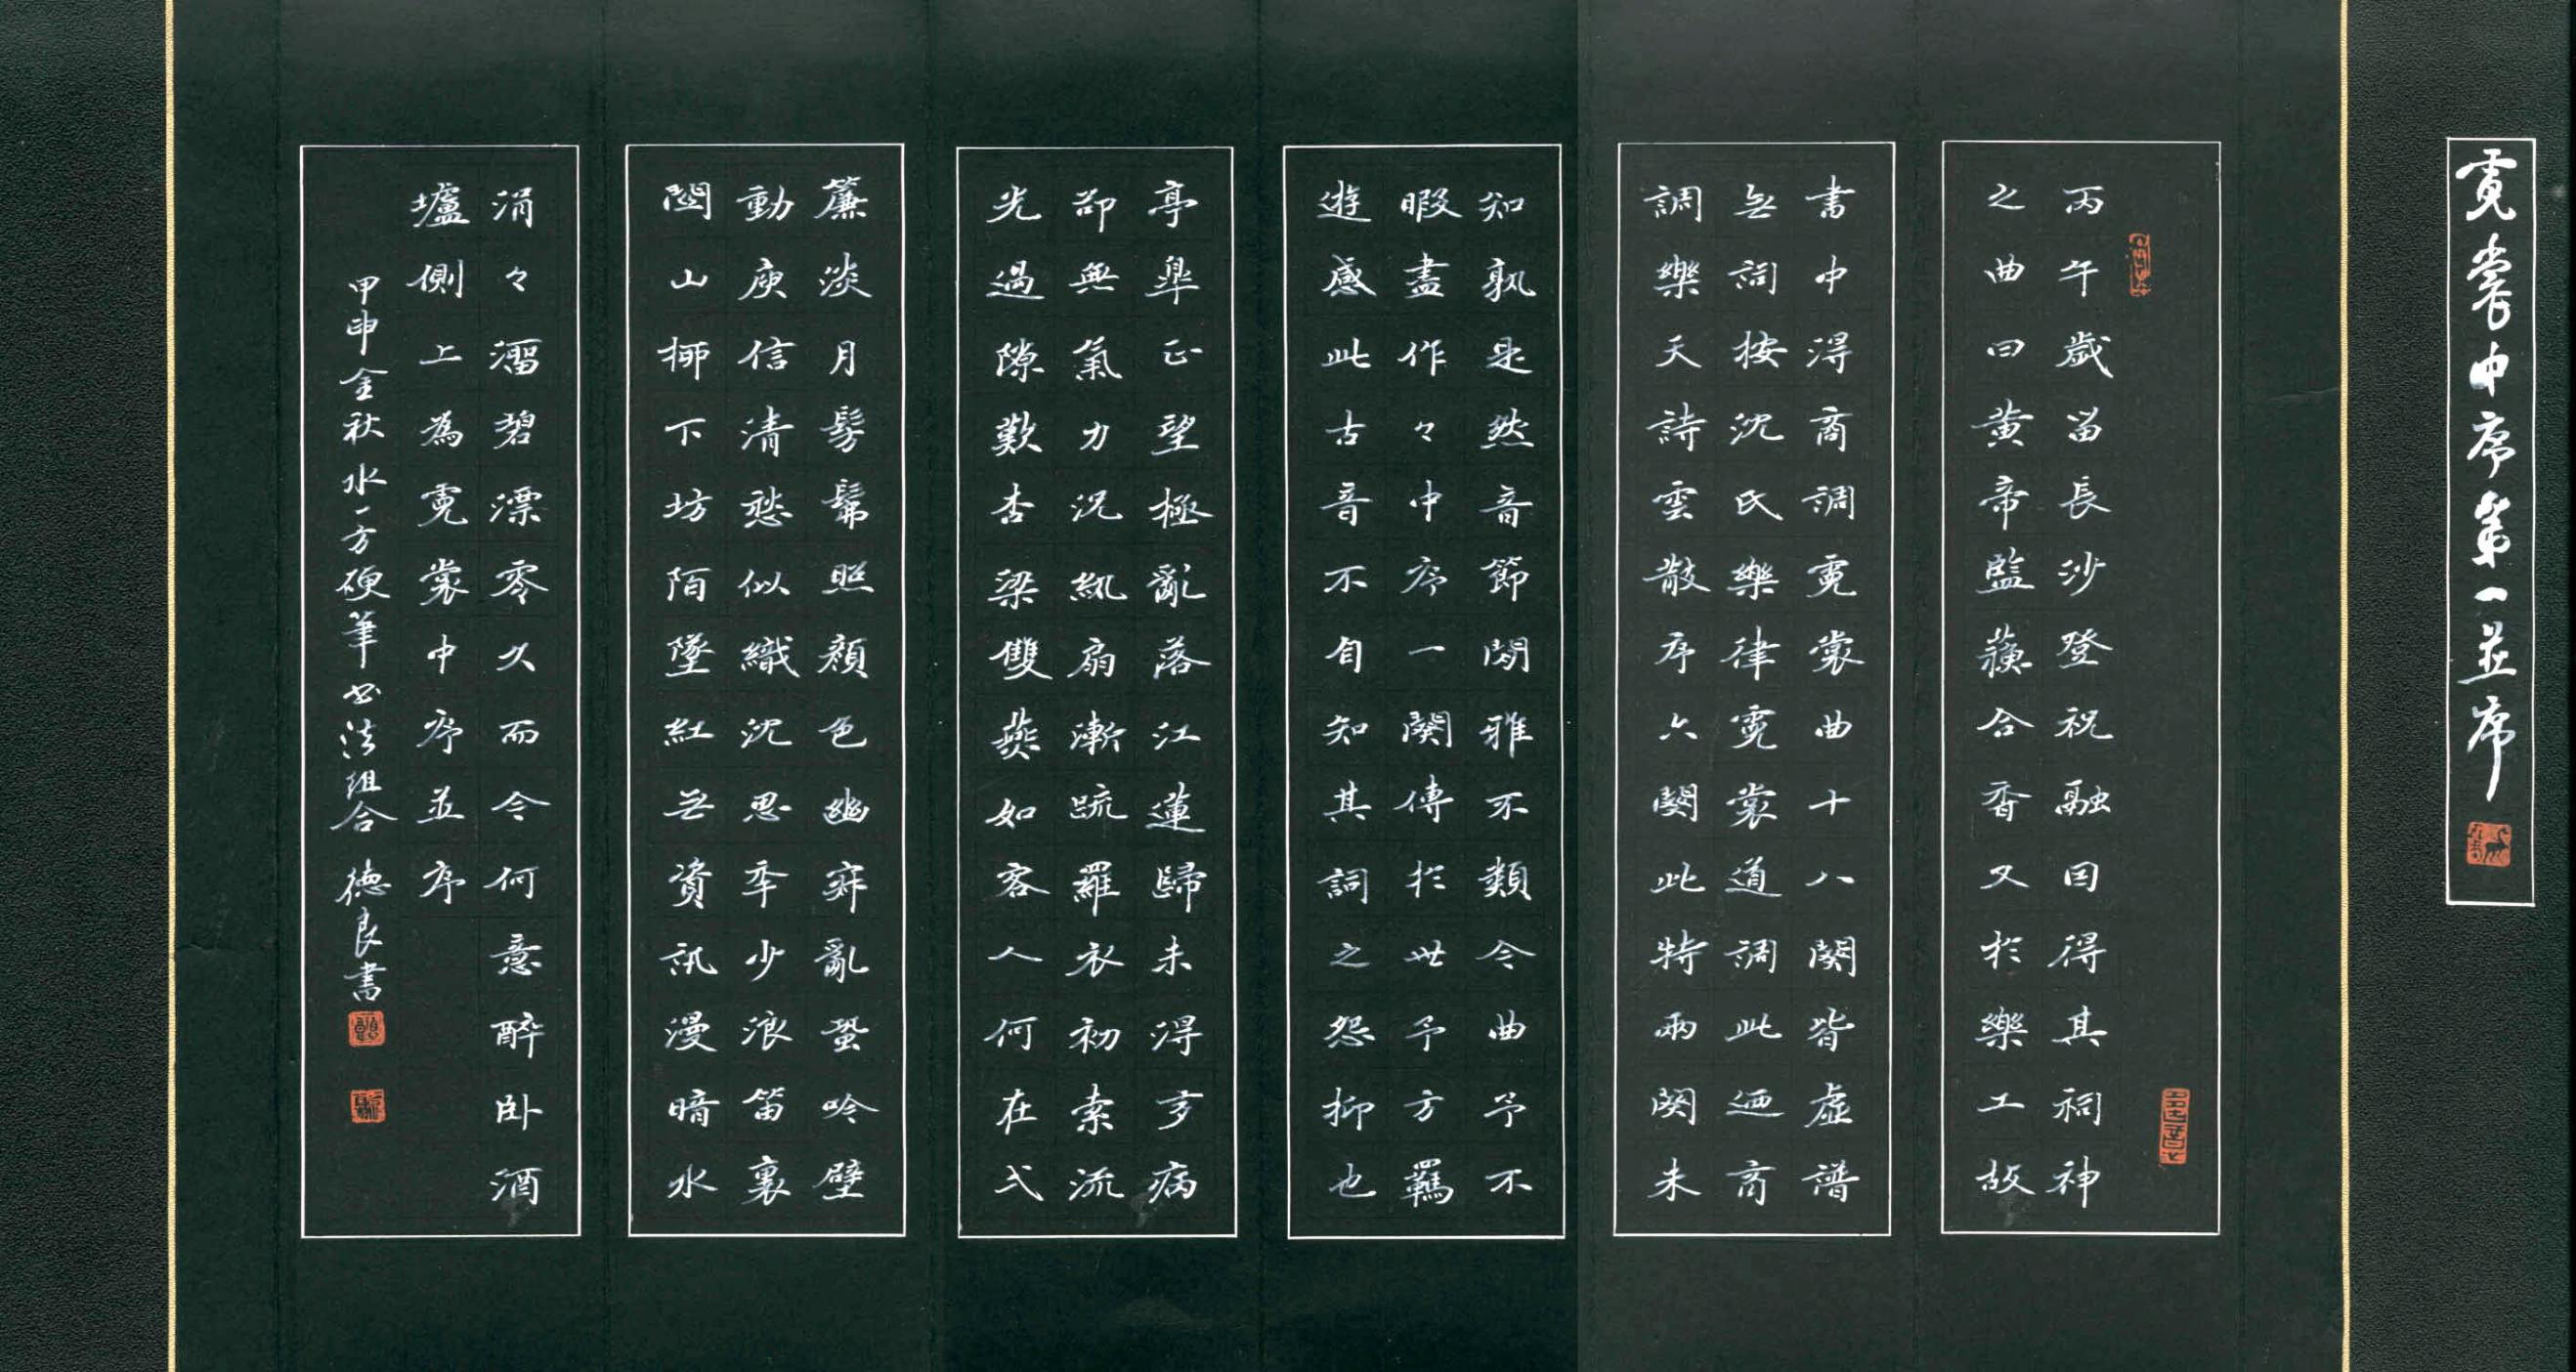 霓裳中序第一並序
丙午歲留長沙登祝融因得其祠神
之曲曰黃帝監蘋合香又於樂工故
書中得商調霓裳曲十八闋皆虛譜
無詞按沈氏樂律霓裳道調此迺商
調樂天詩雲散序六闋此特兩闋未
知孰是然音節閑雅不類今曲予不
暇盡作々中序一闋傳於世予方羈
遊感此古音不自知其詞之怨抑也
亭皐正望極亂落江蓮歸未得多病
卻無氣力況紈扇漸疏羅衣初索流
光過隙歎杏梁雙燕如客人何在弌
簾淡月髣髴照顏色幽寂亂蛩吟壁
動庾信清愁似織沈思年少浪笛裏
關山柳下坊陌墜紅無資訊漫暗水
涓々溜碧漂零久而今何意醉卧酒
壚側上為霓裳中序並序
甲申金秋水一方硬筆书法組合德良書